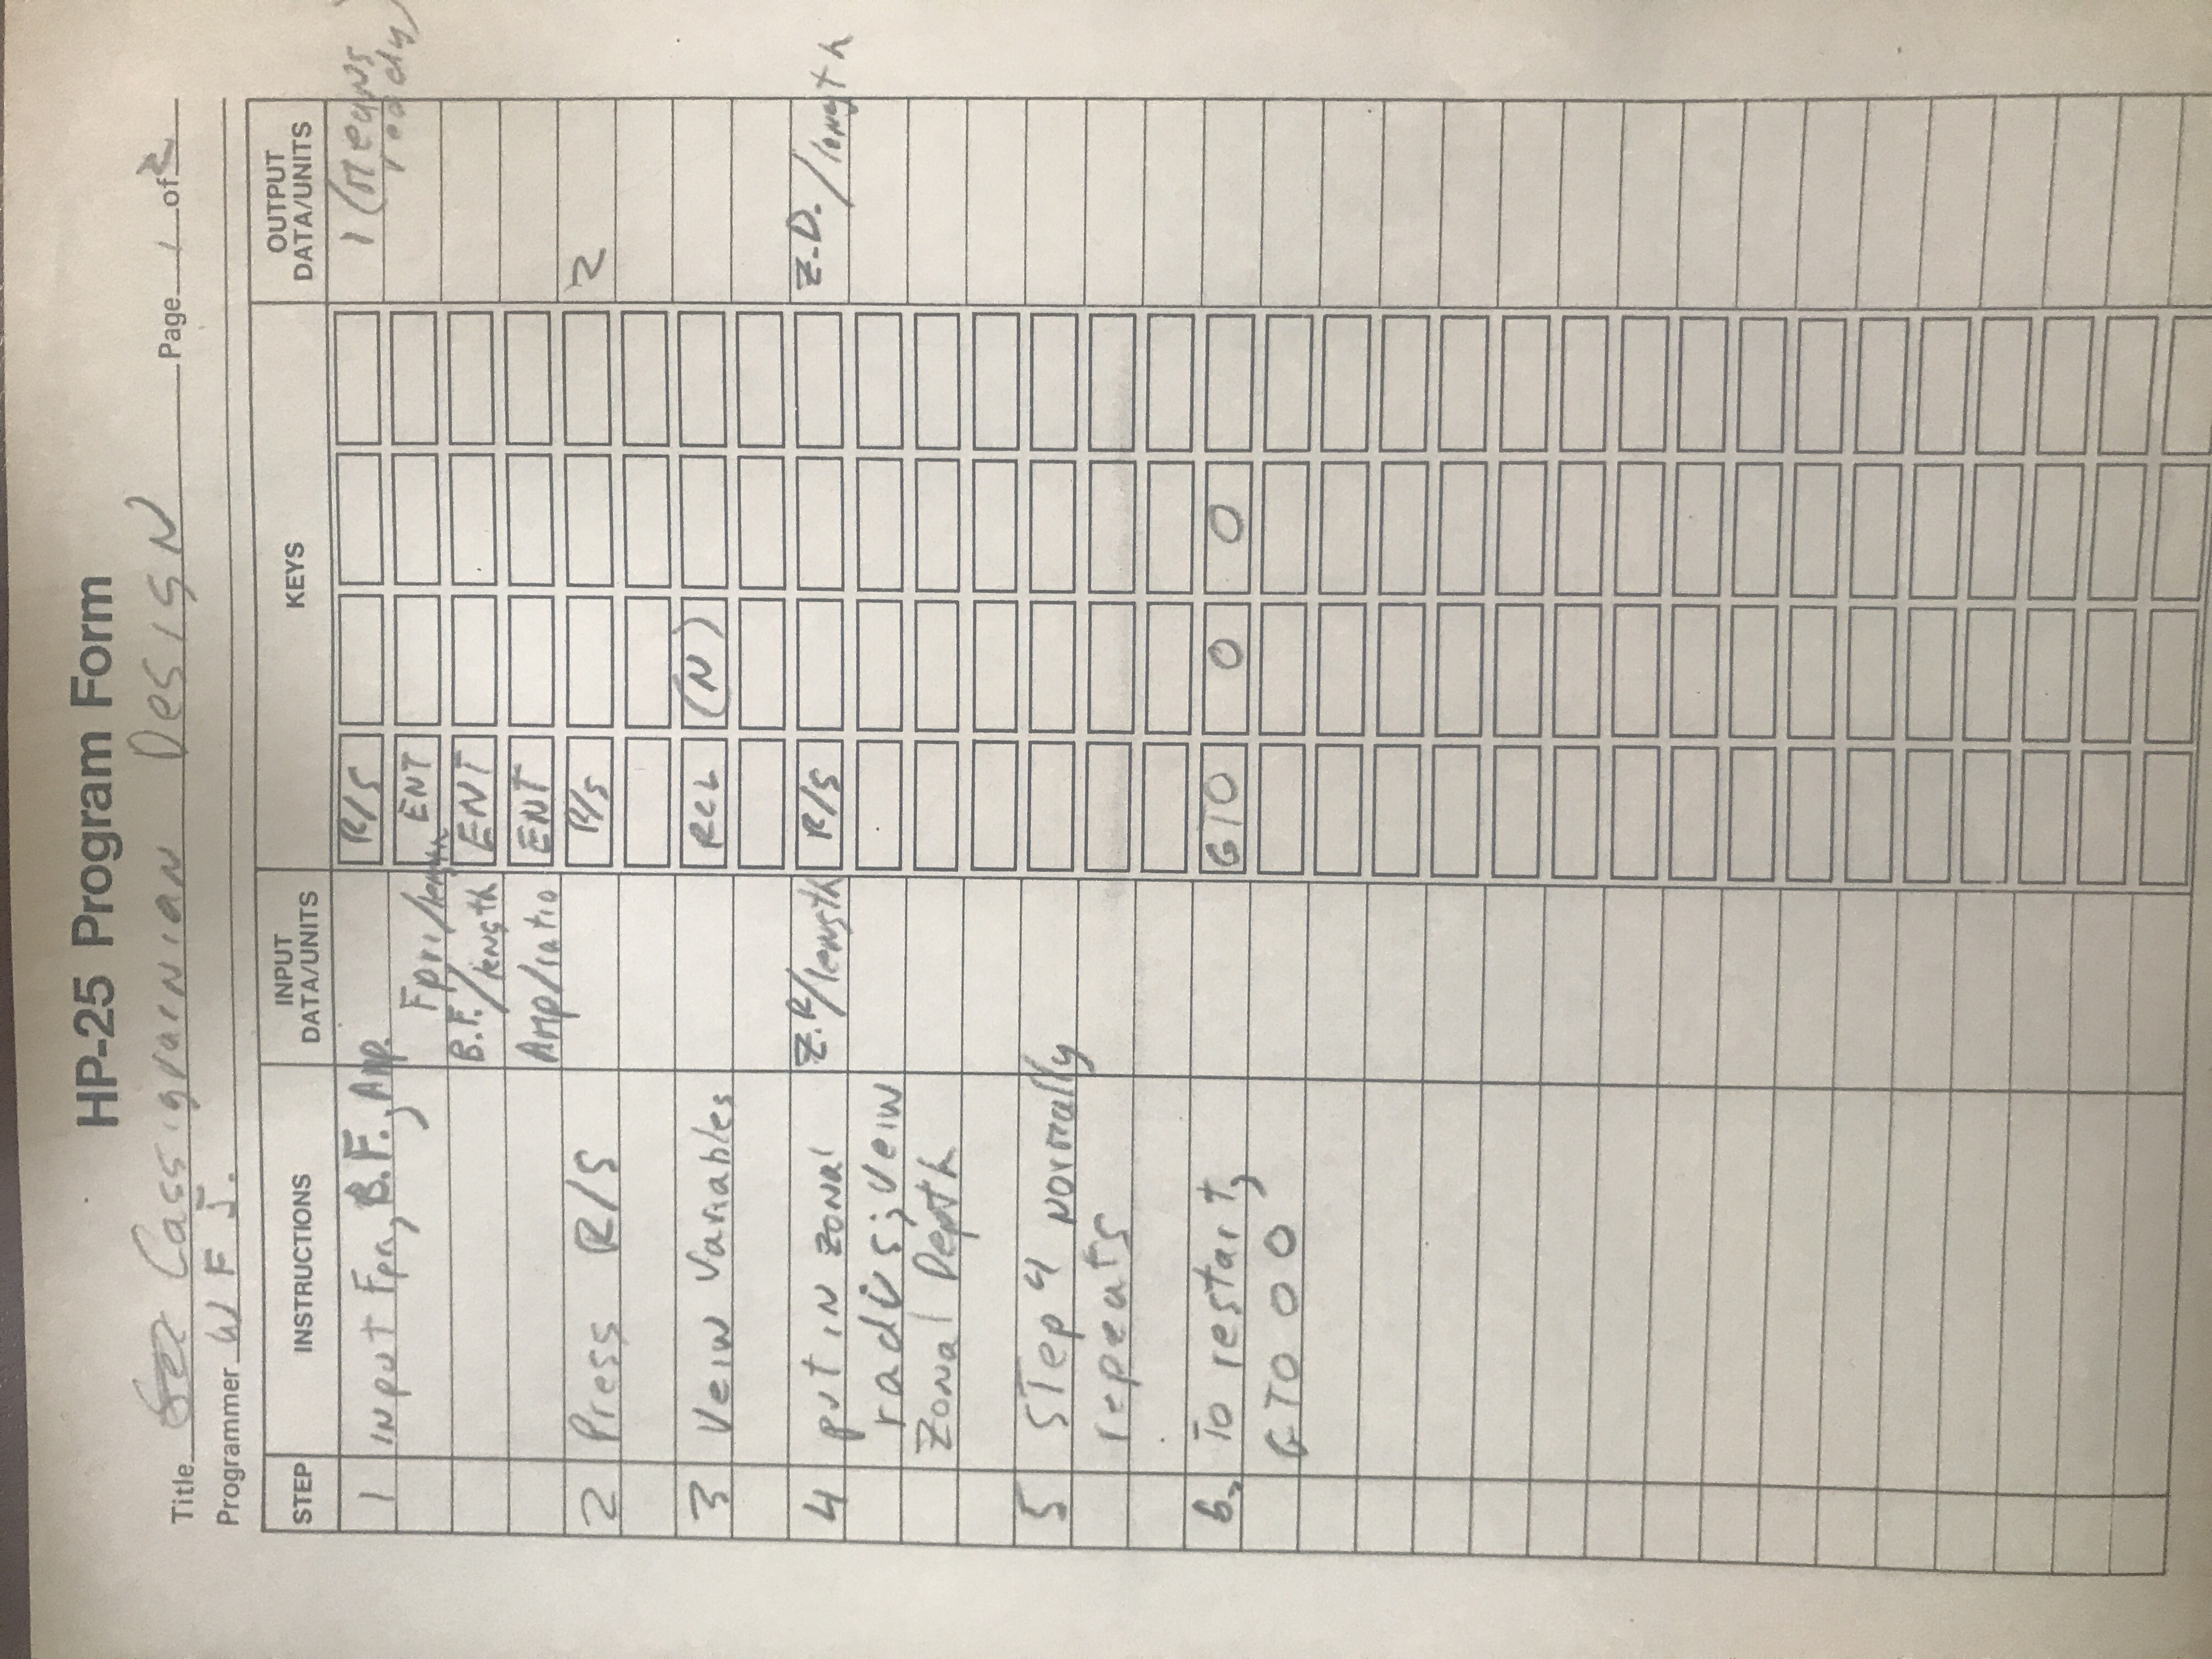 HP-25 Program Form
Title Cassigrainian Design Page 1 of 2
Programmer W F J.
STEP INSTRUCTIONS INPUT DATA/UNITS KEYS OUTPUT DATA/UNITS
1 Input Fpri, B.F., Amp. R/S 1 (Means ready)
Fpri/length ENT
B.F./length ENT
Amp/ratio ENT
2 Press R/S R/S 2
3 Veiw Variables RCL (N)
4 put in zonal Z.R/length R/S Z.D./length
radius; veiw
Zonal Depth
5 Step 4 normally
repeats
6. To restart, GTO 0 0
GTO 0 0